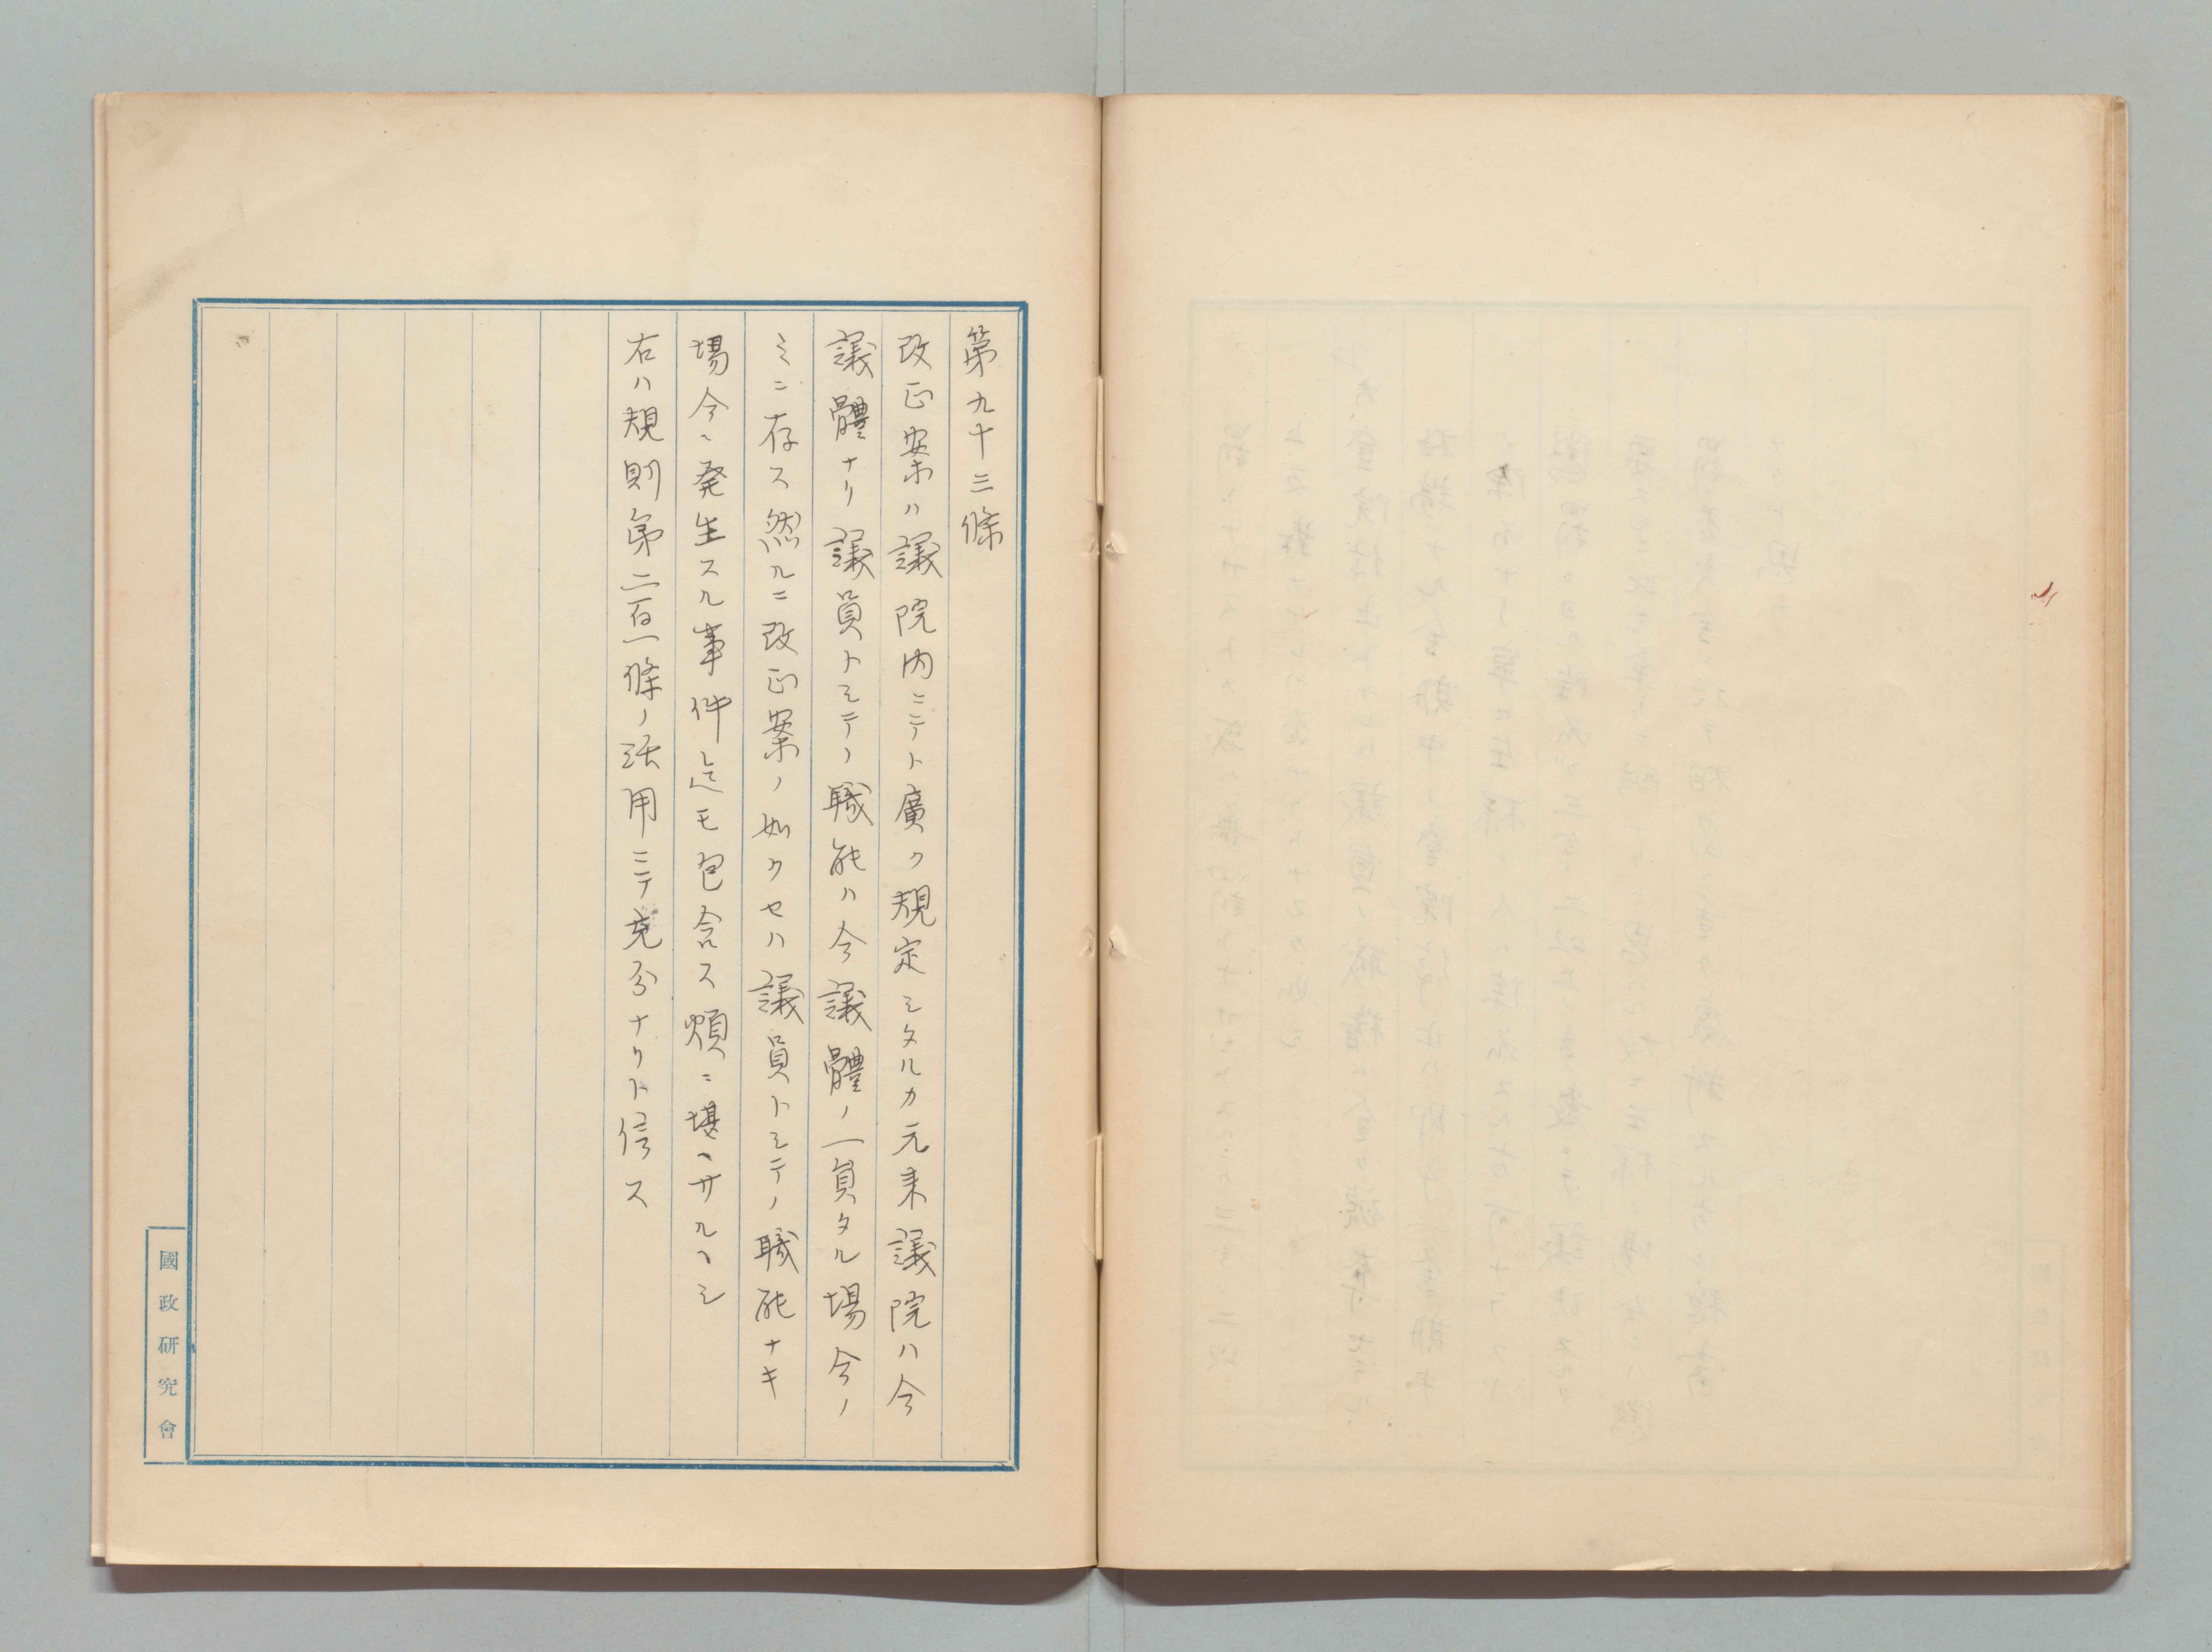 第九十三條
改正案ハ議院内ニテト廣ク規定シタルカ元来議院ハ会
議體ナリ議員トシテノ職能ハ会議體ノ一員タル場合ノ
ミニ存ス然ルニ改正案ノ如クセハ議員トシテノ職能ナキ
場合ニ発生スル事件迄モ包含ス煩ニ堪ヘサルヘシ
右ハ規則第二百一條ノ活用ニテ充分ナリト信ス
國政研究會